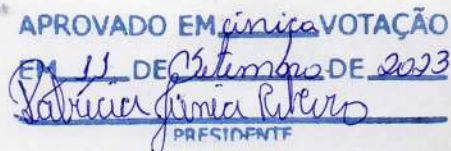 APROVADO EM única VOTAÇÃO
EM 11 DE Setembro DE 2023
Patrícia Júnia Ribeiro
PRESIDENTE